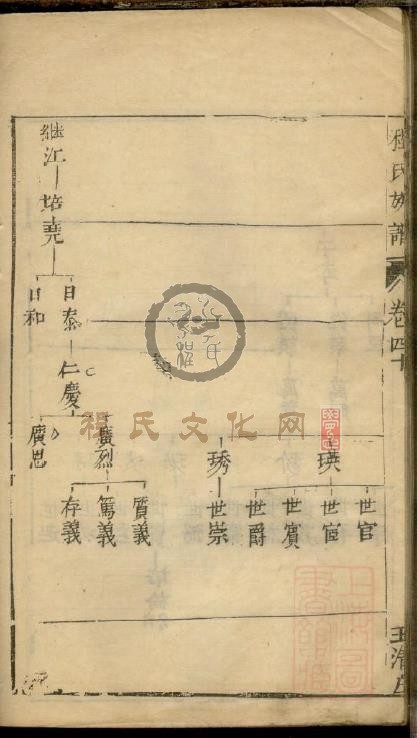 程氏族譜
卷四十
瑛
世官
世宦
世賓
世爵
琇
世崇
繼江
培堯
日泰
日和
仁慶
廣烈
廣思
質義
篤義
存義
程氏文化网